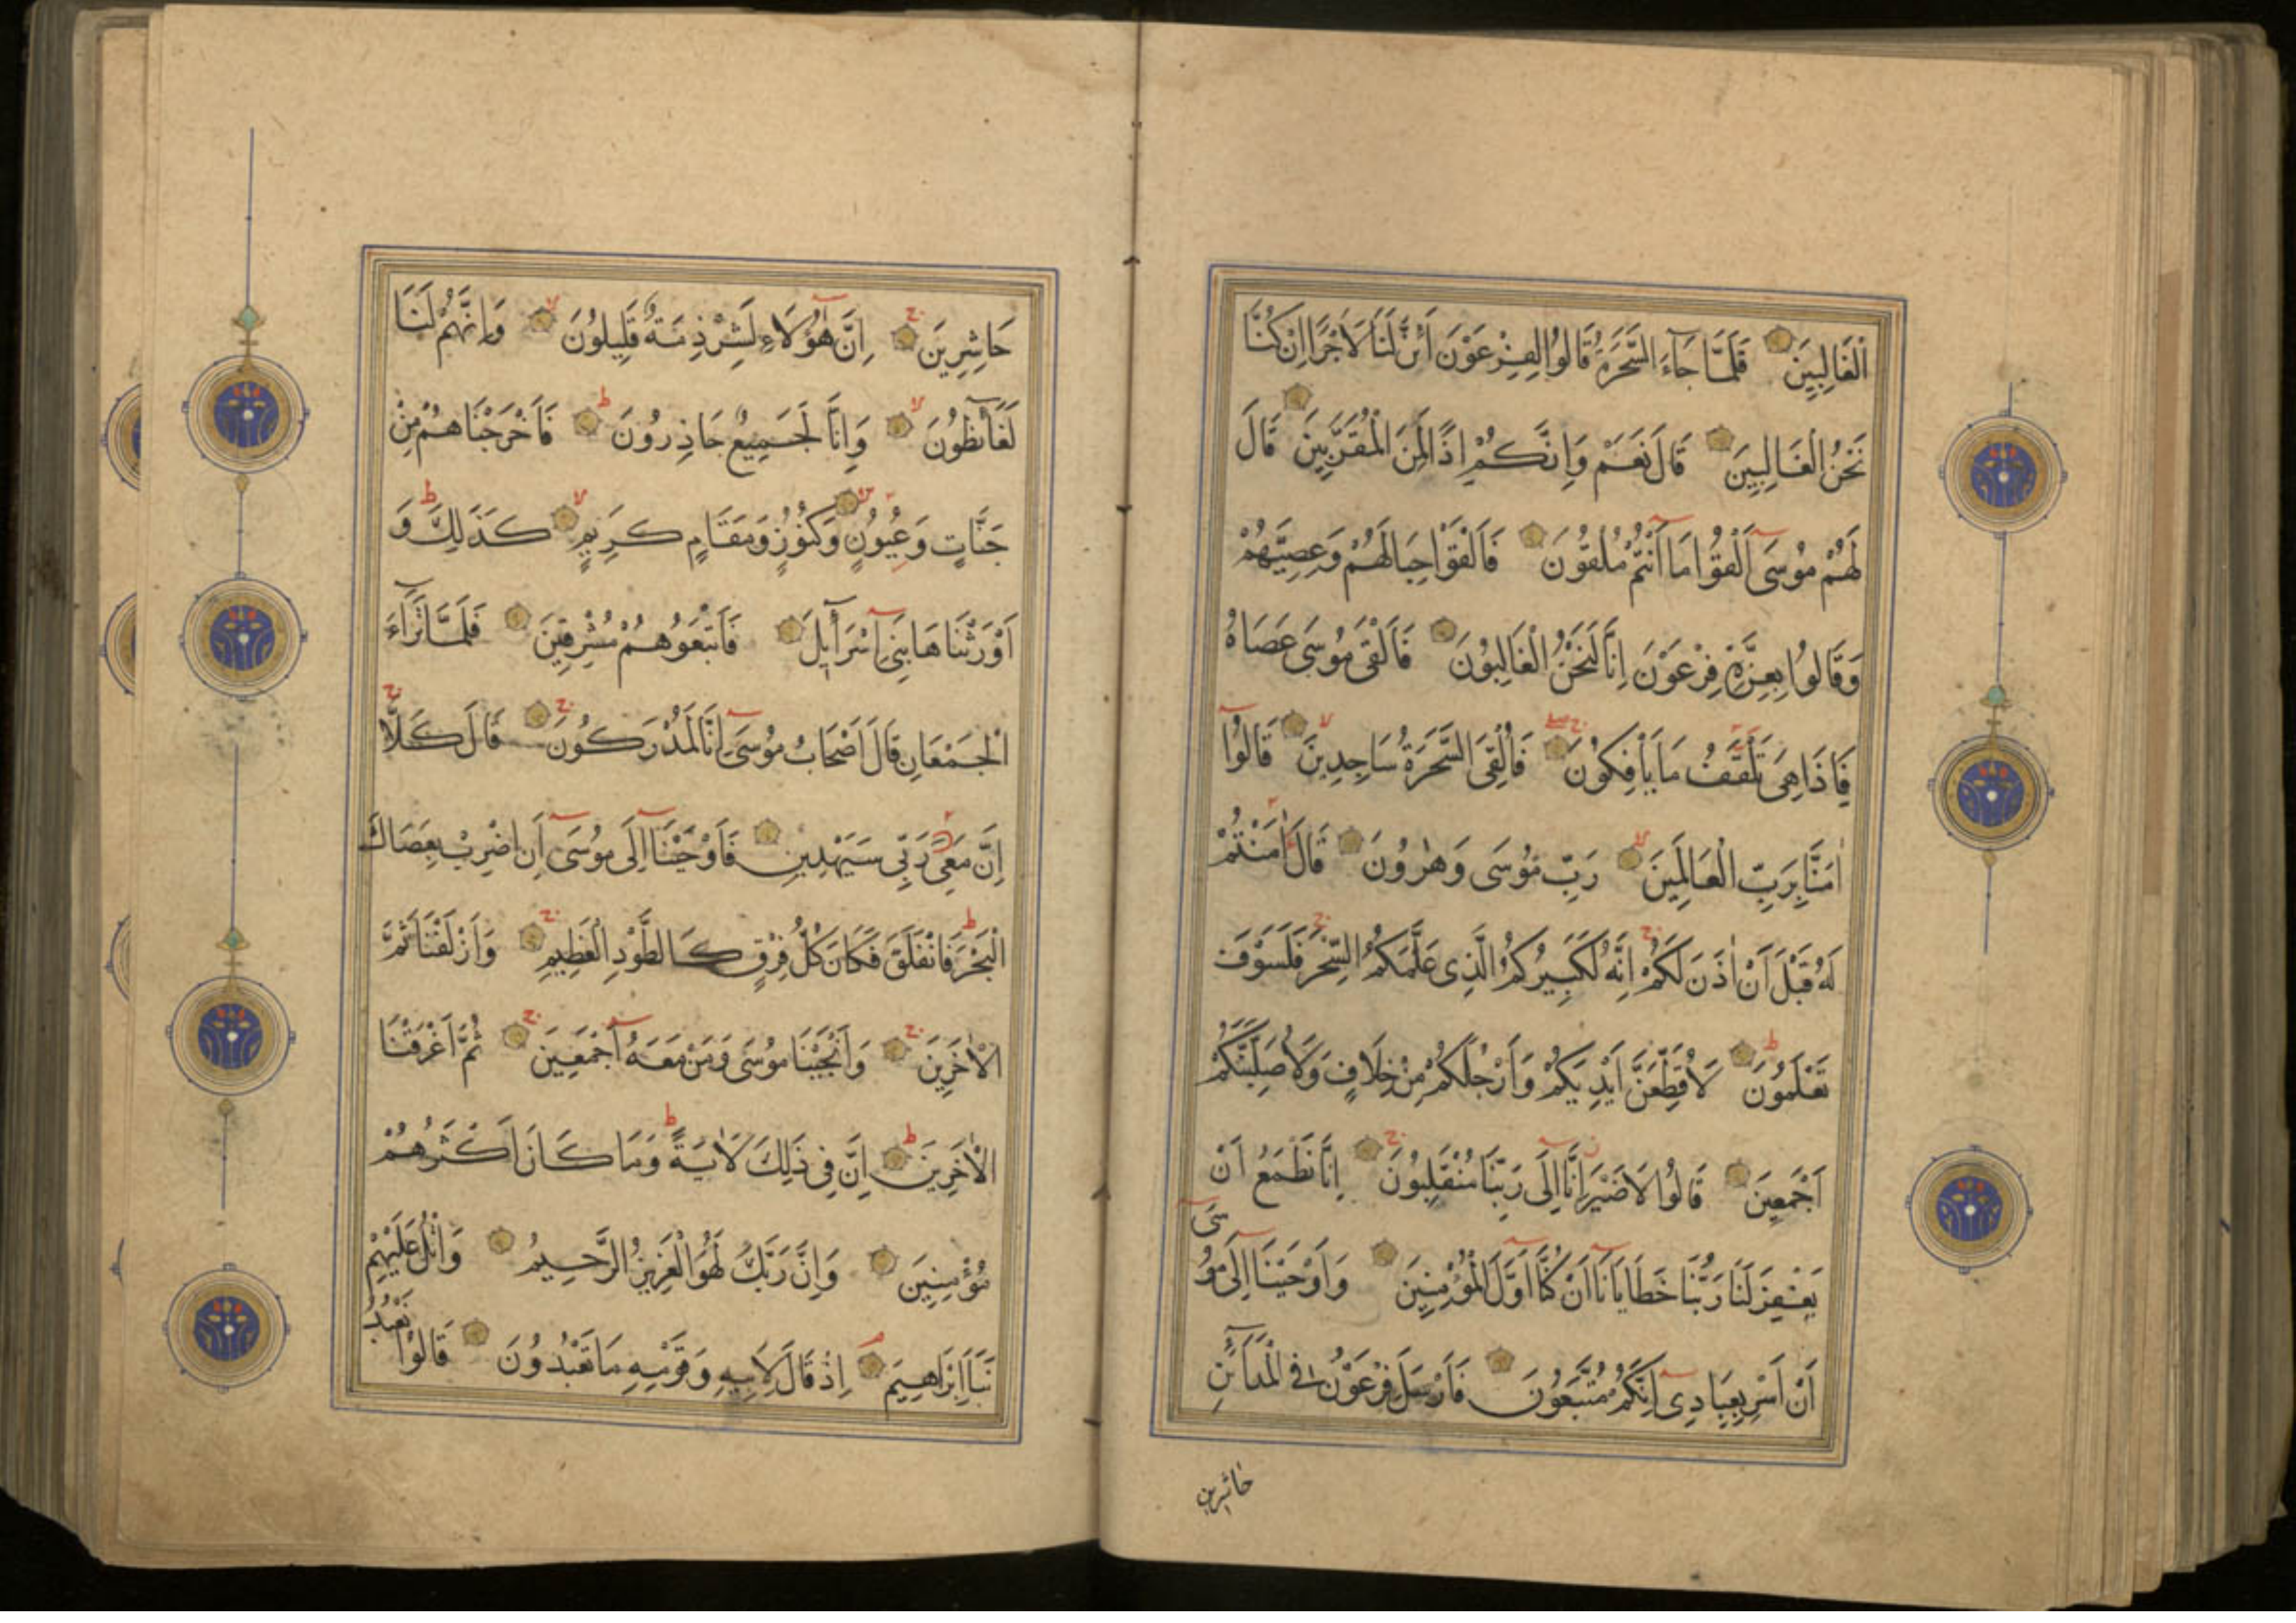 الْغَالِبِينَ فَلَمَّا جَاءَ السَّحَرَةُ قَالُوا لِفِرْعَوْنَ أَئِنَّ لَنَا لَاَجْرًا اِنْ كُنَّا
نَحْنُ الْغَالِبِينَ قَالَ نَعَمْ وَاِنَّكُمْ اِذًا لَمِنَ الْمُقَرَّبِينَ قَالَ
لَهُمْ مُوسَى اَلْقُوا مَا اَنْتُمْ مُلْقُونَ فَاَلْقَوْا حِبَالَهُمْ وَعِصِيَّهُمْ
وَقَالُوا بِعِزَّةِ فِرْعَوْنَ اِنَّا لَنَحْنُ الْغَالِبُونَ فَاَلْقَى مُوسَى عَصَاهُ
فَاِذَا هِىَ تَلْقَفُ مَا يَاْفِكُونَ فَاُلْقِىَ السَّحَرَةُ سَاجِدِينَ قَالُوا
اٰمَنَّا بِرَبِّ الْعَالَمِينَ رَبِّ مُوسَى وَهٰرُونَ قَالَ اٰمَنْتُمْ
لَهُ قَبْلَ اَنْ اٰذَنَ لَكُمْ اِنَّهُ لَكَبِيرُكُمُ الَّذِى عَلَّمَكُمُ السِّحْرَ فَلَسَوْفَ
تَعْلَمُونَ لَاُقَطِّعَنَّ اَيْدِيَكُمْ وَاَرْجُلَكُمْ مِنْ خِلَافٍ وَلَاُصَلِّبَنَّكُمْ
اَجْمَعِينَ قَالُوا لَا ضَيْرَ اِنَّا اِلَى رَبِّنَا مُنْقَلِبُونَ اِنَّا نَطْمَعُ اَنْ
يَغْفِرَ لَنَا رَبُّنَا خَطَايَانَا اَنْ كُنَّا اَوَّلَ الْمُؤْمِنِينَ وَاَوْحَيْنَا اِلَى مُوسَى
اَنْ اَسْرِ بِعِبَادِى اِنَّكُمْ مُتَّبَعُونَ فَاَرْسَلَ فِرْعَوْنُ فِى الْمَدَائِنِ
حاشرين
حَاشِرِينَ اِنَّ هٰؤُلَاءِ لَشِرْذِمَةٌ قَلِيلُونَ وَاِنَّهُمْ لَنَا
لَغَائِظُونَ وَاِنَّا لَجَمِيعٌ حَاذِرُونَ فَاَخْرَجْنَاهُمْ مِنْ
جَنَّاتٍ وَعُيُونٍ وَكُنُوزٍ وَمَقَامٍ كَرِيمٍ كَذَلِكَ وَ
اَوْرَثْنَاهَا بَنِى اِسْرَائِلَ فَاَتْبَعُوهُمْ مُشْرِقِينَ فَلَمَّا تَرَاءَ
الْجَمْعَانِ قَالَ اَصْحَابُ مُوسَى اِنَّا لَمُدْرَكُونَ قَالَ كَلَّا
اِنَّ مَعِىَ رَبِّى سَيَهْدِينِ فَاَوْحَيْنَا اِلَى مُوسَى اَنِ اضْرِبْ بِعَصَاكَ
الْبَحْرَ فَانْفَلَقَ فَكَانَ كُلُّ فِرْقٍ كَالطَّوْدِ الْعَظِيمِ وَاَزْلَفْنَا ثَمَّ
الْاٰخَرِينَ وَاَنْجَيْنَا مُوسَى وَمَنْ مَعَهُ اَجْمَعِينَ ثُمَّ اَغْرَقْنَا
الْاٰخَرِينَ اِنَّ فِى ذَلِكَ لَاٰيَةً وَمَا كَانَ اَكْثَرُهُمْ
مُؤْمِنِينَ وَاِنَّ رَبَّكَ لَهُوَ الْعَزِيزُ الرَّحِيمُ وَاتْلُ عَلَيْهِمْ
نَبَاَ اِبْرَاهِيمَ اِذْ قَالَ لِاَبِيهِ وَقَوْمِهِ مَا تَعْبُدُونَ قَالُوا نَعْبُدُ